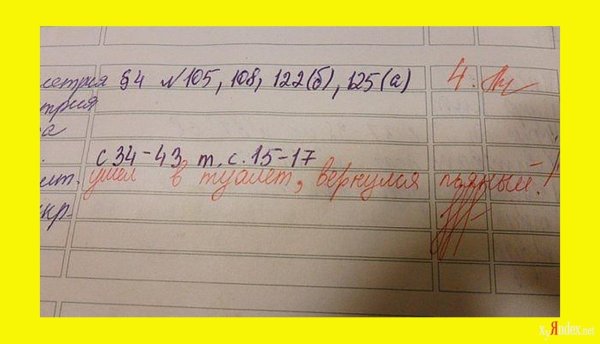 метрия §4 №105, 108, 122(б), 125(а) 4.
трия
а
с 34-43, т. с. 15-17
ушел в туалет, вернулся пьяный!
хуЯndex.net